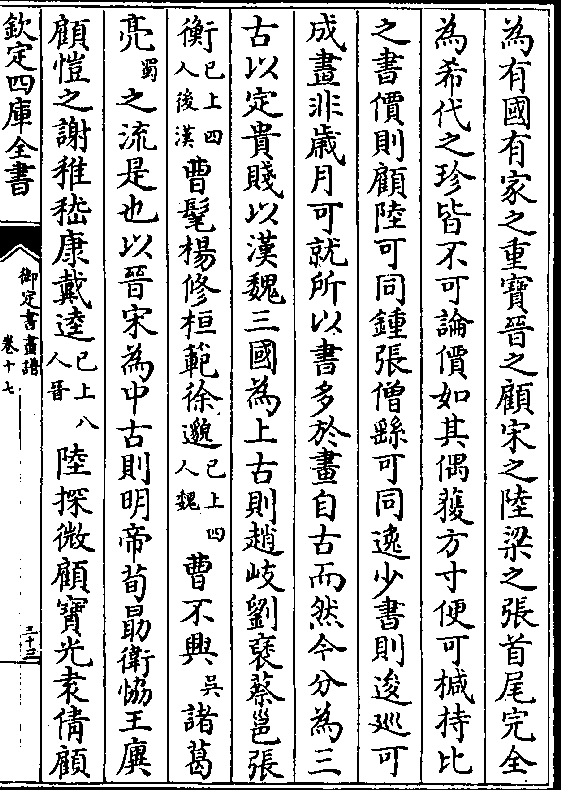 為有國有家之重寶晉之顧宋之陸梁之張首尾完全
為希代之珍皆不可論價如其偶獲方寸便可緘持比
之書價則顧陸可同鍾張僧繇可同逸少書則逡巡可
成畫非歲月可就所以書多於畫自古而然今分為三
古以定貴賤以漢魏三國為上古則趙岐劉褒蔡邕張
衡已上四人後漢曹髦楊修桓範徐邈已上四人魏曹不興吳諸葛
亮蜀之流是也以晉宋為中古則明帝荀勗衛協王廙
顧愷之謝稚嵇康戴逵已上八人晉陸探微顧寶光袁倩顧
欽定四庫全書
御定書畫譜
卷十七
三十三